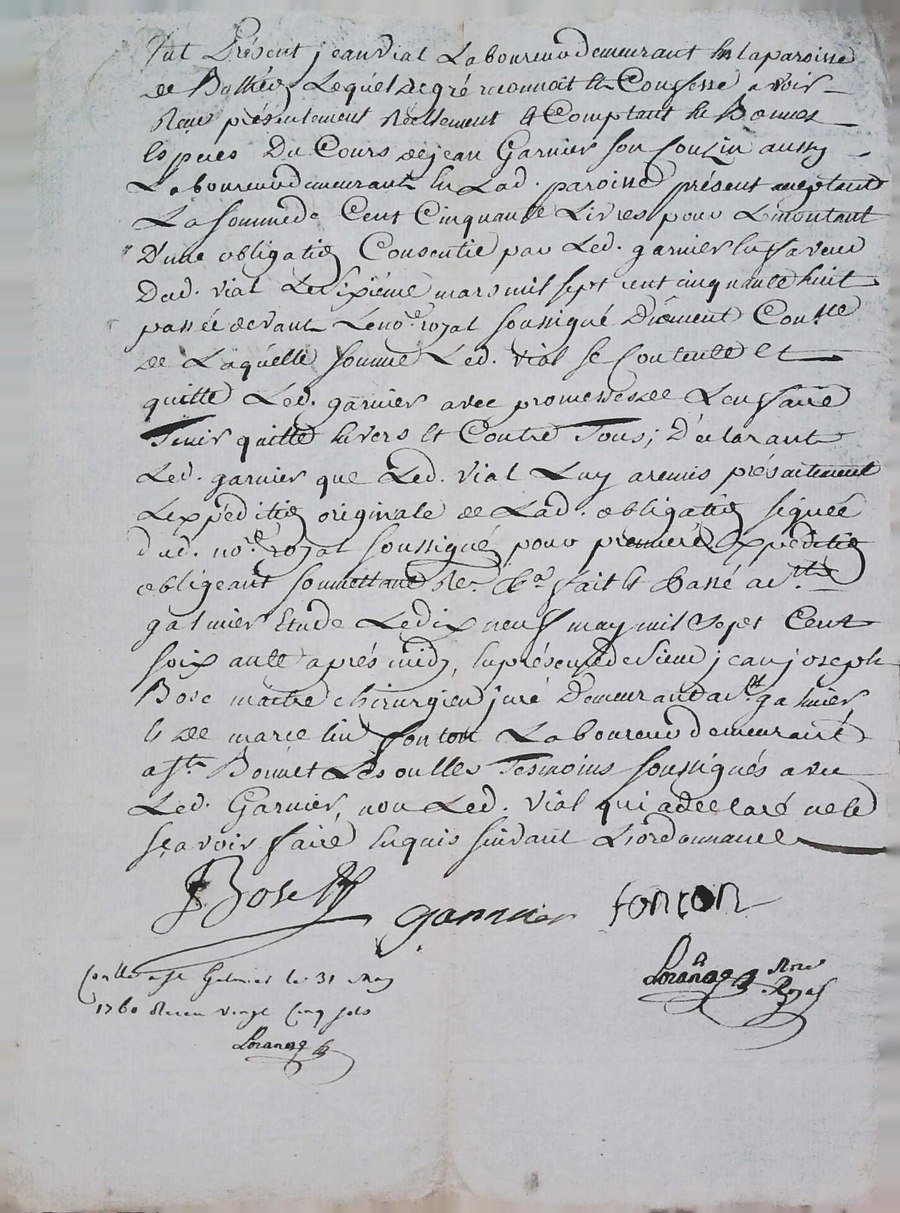 fut Présent jean vial Laboureur demeurant En la paroisse
de Lequel de gré reconnoit Et Confesse avoir
Reçu présentement Réellement Et Comptant En Bonnes
Espèces Du Cours de jean Garnier son Cousin aussy
Laboureur demeurant En Lad. paroisse présent acceptant
La somme de Cent Cinquante Livres pour Le montant
D'une obligation Consentie par Led. garnier En faveur
Dud. vial Le sixième mars mil sept cent cinquante huit
passée devant Le no.re royal soussigné Düement Con.llée
de Laquelle somme Led. vial se Contente Et
quitte Led. garnier avec promesse de L'en faire
Tenir quitte Envers Et Contre Tous; Déclarant
Led. garnier que Led. vial Luy a remis présentement
L'expédition originale de Lad. obligation signée
dud. no.re royal soussigné pour première Expédition
obligeant soumettant Re.on Ca. fait Et Passé a St.
galmier Etude Le dix neuf may mil sept Cent
soixante après midy, En présence de sieur jean joseph
Bose maitre chirurgien juré Demeurant a St. galmier
Et de marcelin fonton Laboureur demeurant
a St. Bonnet Les oulles Tesmoins soussignés avec
Led. Garnier, non Led. vial qui a déclaré ne le
sçavoir faire Enquis suivant L'ordonnance
Bose garnier fonton
Con.llé a St. Galmier le 31 May
1760 Reçu vingt Cinq sols
Lorange
Lorange Nore
Royal